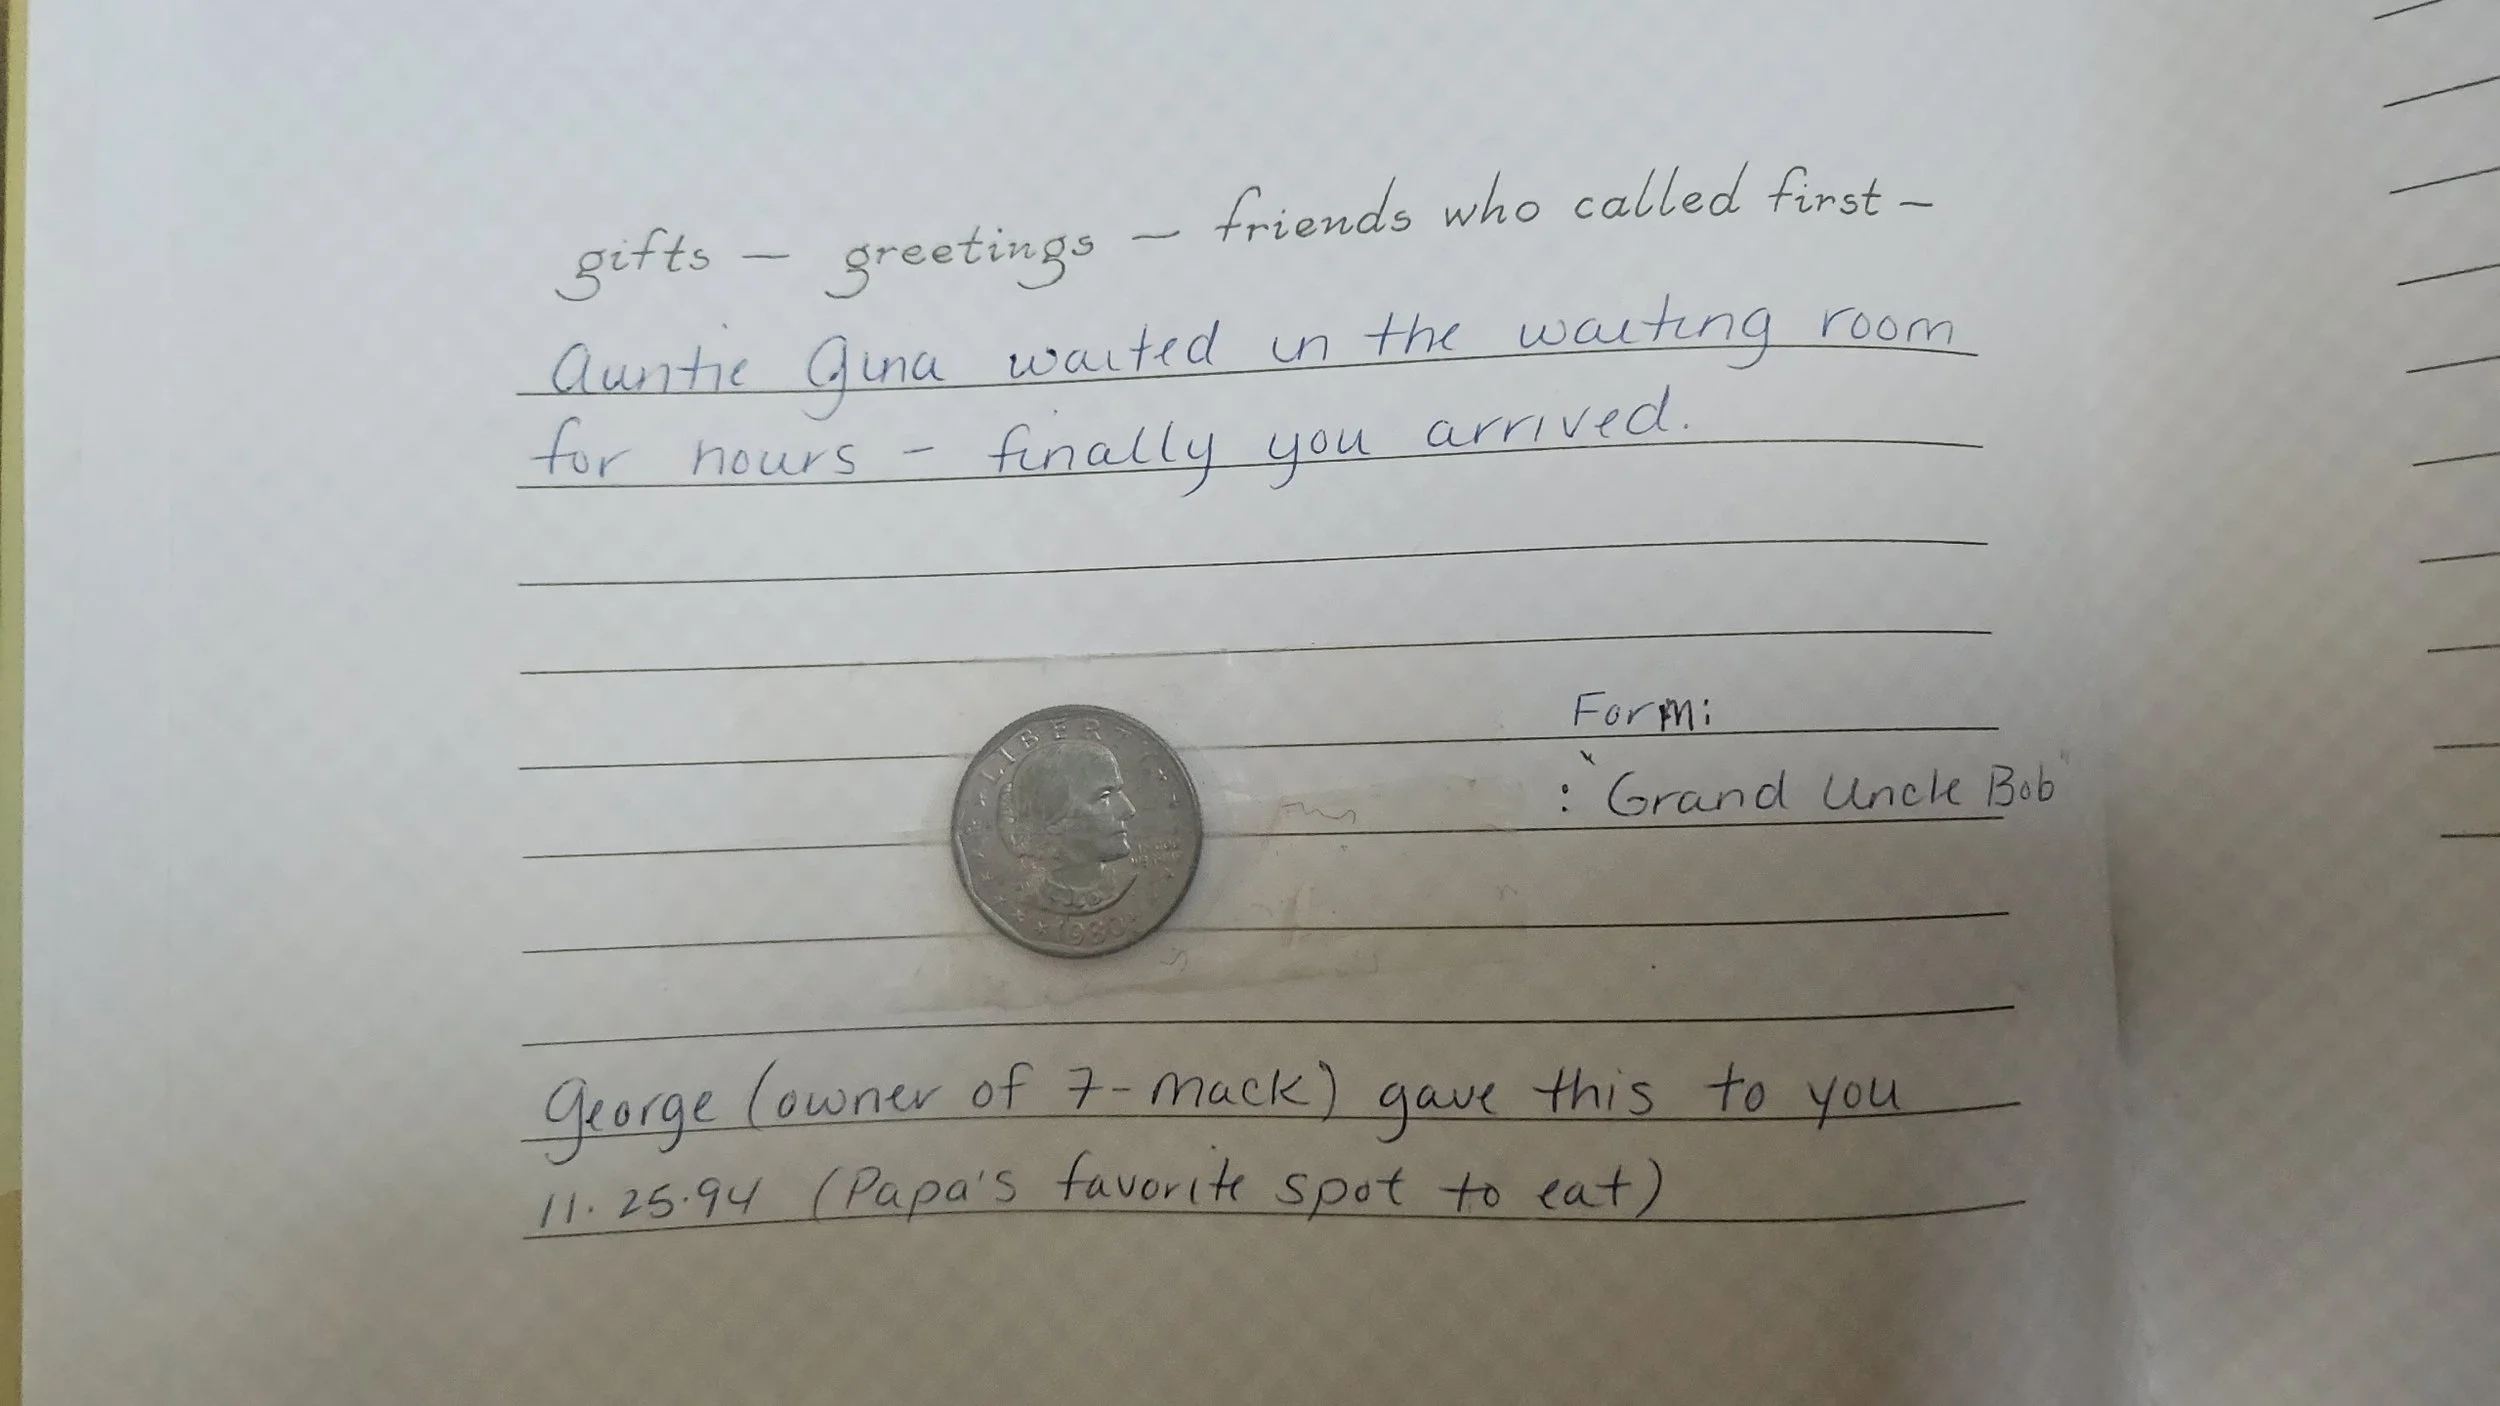 gifts — greetings — friends who called first —
Auntie Gina waited in the waiting room
for hours - finally you arrived.
Form:
LIBERTY
: "Grand Uncle Bob"
1980
George (owner of 7-mack) gave this to you
11.25.94 (Papa's favorite spot to eat)